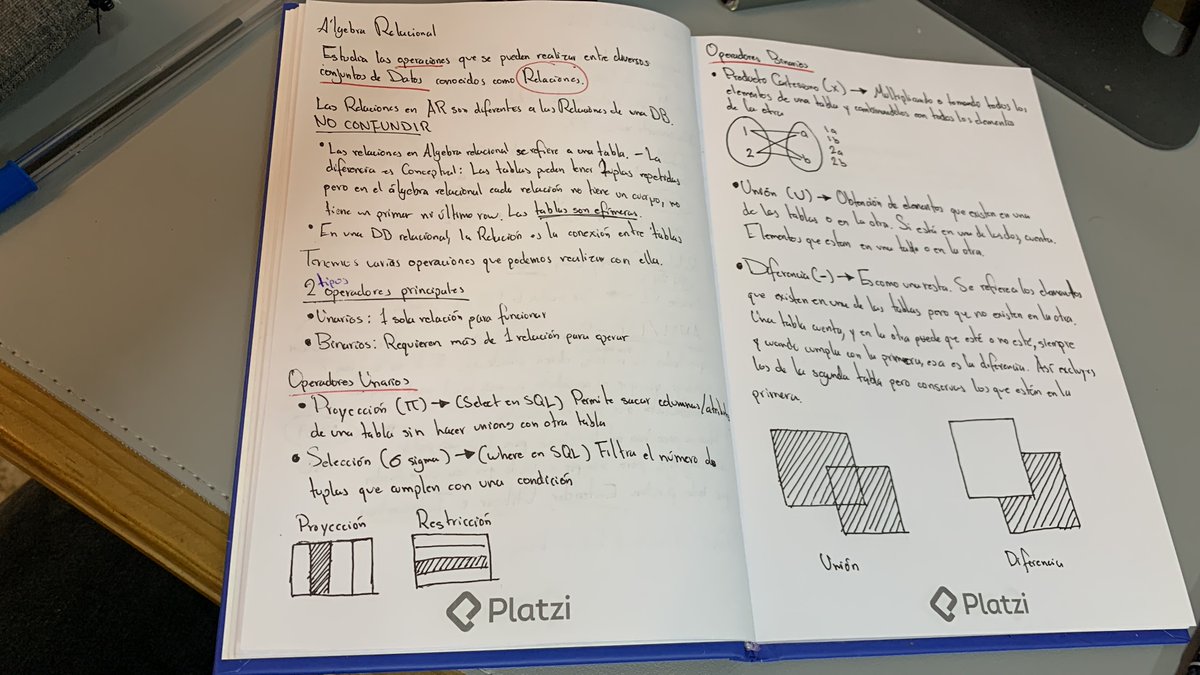 Álgebra Relacional
Estudia las operaciones que se pueden realizar entre diversos
conjuntos de Datos conocidos como Relaciones.
Las Relaciones en AR son diferentes a las Relaciones de una DB.
NO CONFUNDIR
• Las relaciones en Álgebra relacional se refiere a una tabla. - La
diferencia es Conceptual: Las tablas pueden tener Tuplas repetidas
pero en el álgebra relacional cada relación no tiene un cuerpo, no
tiene un primer ni último row. Las tablas son efímeras.
• En una DD relacional, la Relación es la conexión entre tablas
Tenemos varias operaciones que podemos realizar con ella.
2 tipos operadores principales
• Unarios: 1 sola relación para funcionar
• Binarios: Requieren más de 1 relación para operar
Operadores Unarios
• Proyección (π) → (Select en SQL) Permite sacar columnas/atributos
de una tabla sin hacer uniones con otra tabla
• Selección (σ sigma) → (where en SQL) Filtra el número de
tuplas que cumplen con una condición
Proyección Restricción
Platzi
Operadores Binarios
• Producto Cartesiano (x) → Multiplicando o tomando todos los
elementos de una tabla y combinandolos con todos los elementos
de la otra
1 a 1a
1b
2 b 2a
2b
• Unión (∪) → Obtención de elementos que existen en una
de las tablas o en la otra. Si está en una de las dos, cuenta.
Elementos que estan en una tabla o en la otra.
• Diferencia (-) → Es como una resta. Se refiere a los elementos
que existen en una de las tablas pero que no existen en la otra.
Una tabla cuenta, y en la otra puede que esté o no esté, siempre
y cuando cumpla con la primera, esa es la diferencia. Así excluyes
los de la segunda tabla pero conservas los que están en la
primera.
Unión Diferencia
Platzi